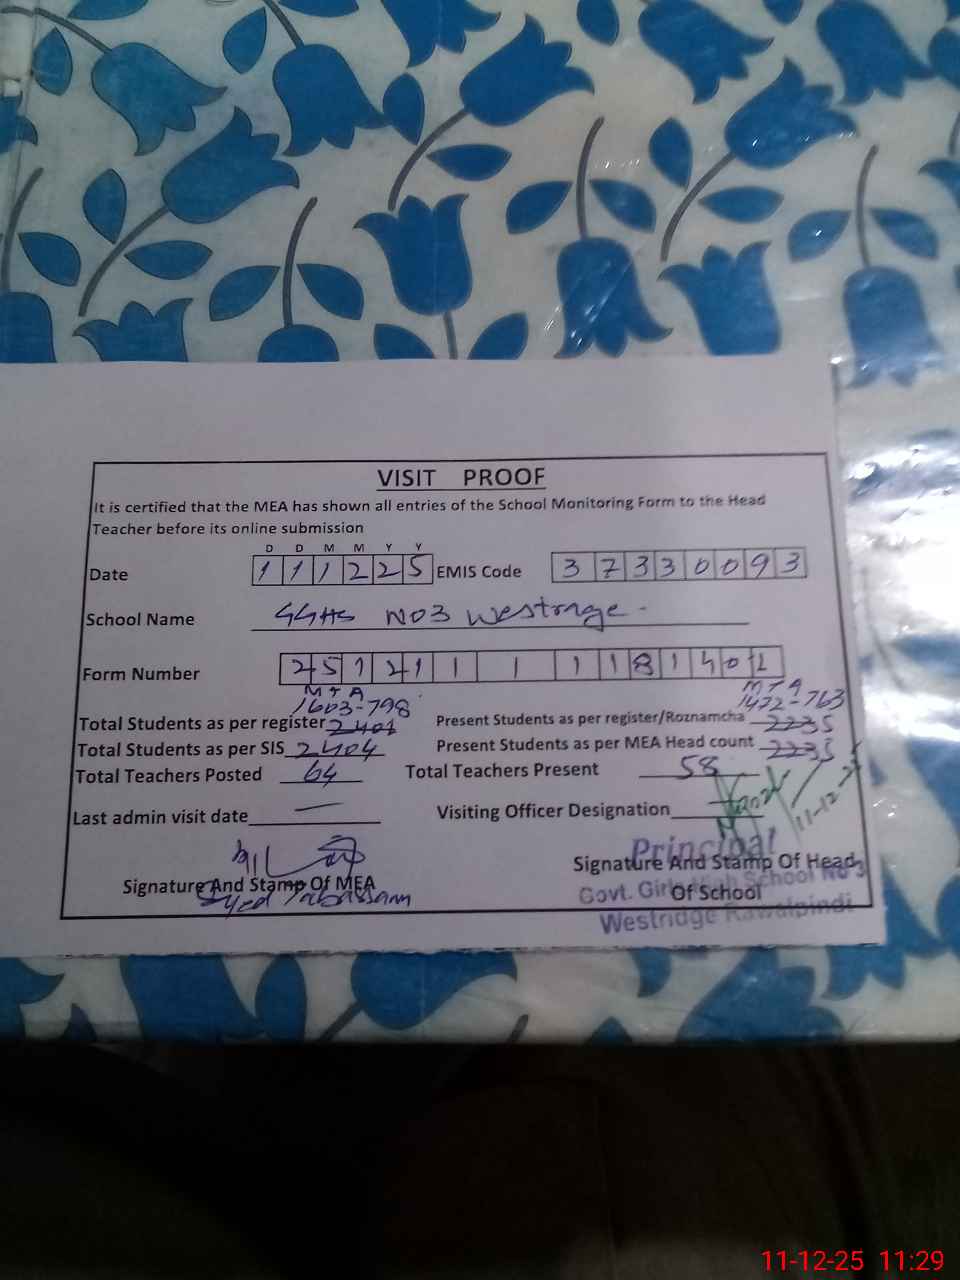 VISIT PROOF
It is certified that the MEA has shown all entries of the School Monitoring Form to the Head
Teacher before its online submission
D D M M Y Y
Date 1 1 1 2 2 5 EMIS Code 3 7 3 3 0 0 9 3
School Name GGHS NO3 Westrage
Form Number 2 5 1 2 1 1 1 1 1 8 1 4 0 1
M T A M T A
1603-798 1472-763
Total Students as per register 2401 Present Students as per register/Roznamcha 2235
Total Students as per SIS 2404 Present Students as per MEA Head count 2235
Total Teachers Posted 64 Total Teachers Present 58
Last admin visit date — Visiting Officer Designation
11-12-25
Principal
Signature And Stamp Of MEA Signature And Stamp Of Head
Syed Tabassam Of School
Govt. Girls High School No 3
Westridge Rawalpindi
11-12-25 11:29